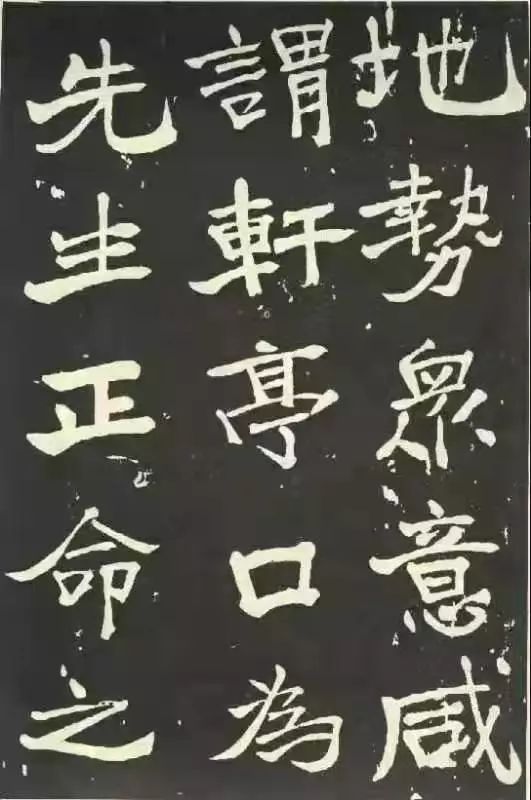 地勢眾意咸
謂軒亭口為
先生正命之